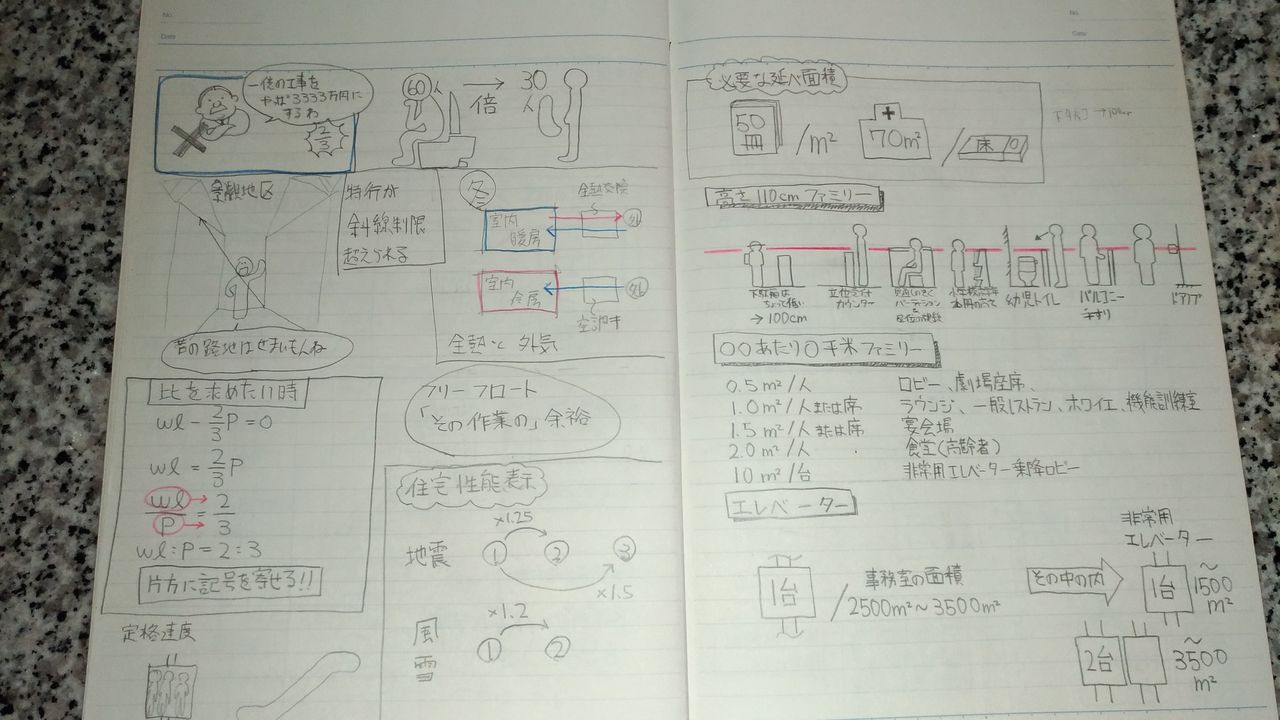 No.
Date
一億の工事を
3333万円に
するわ
2/3
60人
倍
30人
金融地区
特行が
斜線制限
超えられる
昔の路地はせまいもんね
冬
全熱交換
室内
暖房
外
室内
冷房
外
空調キ
全熱 外気
比を求めたい時
wl - 2/3 P = 0
wl = 2/3 P
wl/P = 2/3
wl:P = 2:3
片方に記号を寄せろ!!
フリーフロート
「その作業の」余裕
住宅性能表示
×1.25
地震 ① ② ③
×1.5
×1.2
風 ① ②
雪
定格速度
No.
Date
必要な延べ面積
50冊 /m²
70m² /床
高さ110cmファミリー
下駄箱は
ちょって低い
→100cm
立位受付
カウンター
見通しのきく
パーテーション
座位の
小学校高学年
幼児トイレ
バルコニー
手すり
ドアノブ
〇〇あたり〇平米ファミリー
0.5m²/人 ロビー、劇場座席、
1.0m²/人または席 ラウンジ、一般レストラン、ホワイエ、機能訓練室
1.5m²/人または席 宴会場
2.0m²/人 食堂(高齢者)
10m²/台 非常用エレベーター乗降ロビー
エレベーター
1台 / 事務室の面積
2500m²～3500m²
その中の内
非常用
エレベーター
1台 ～1500m²
2台 ～3500m²